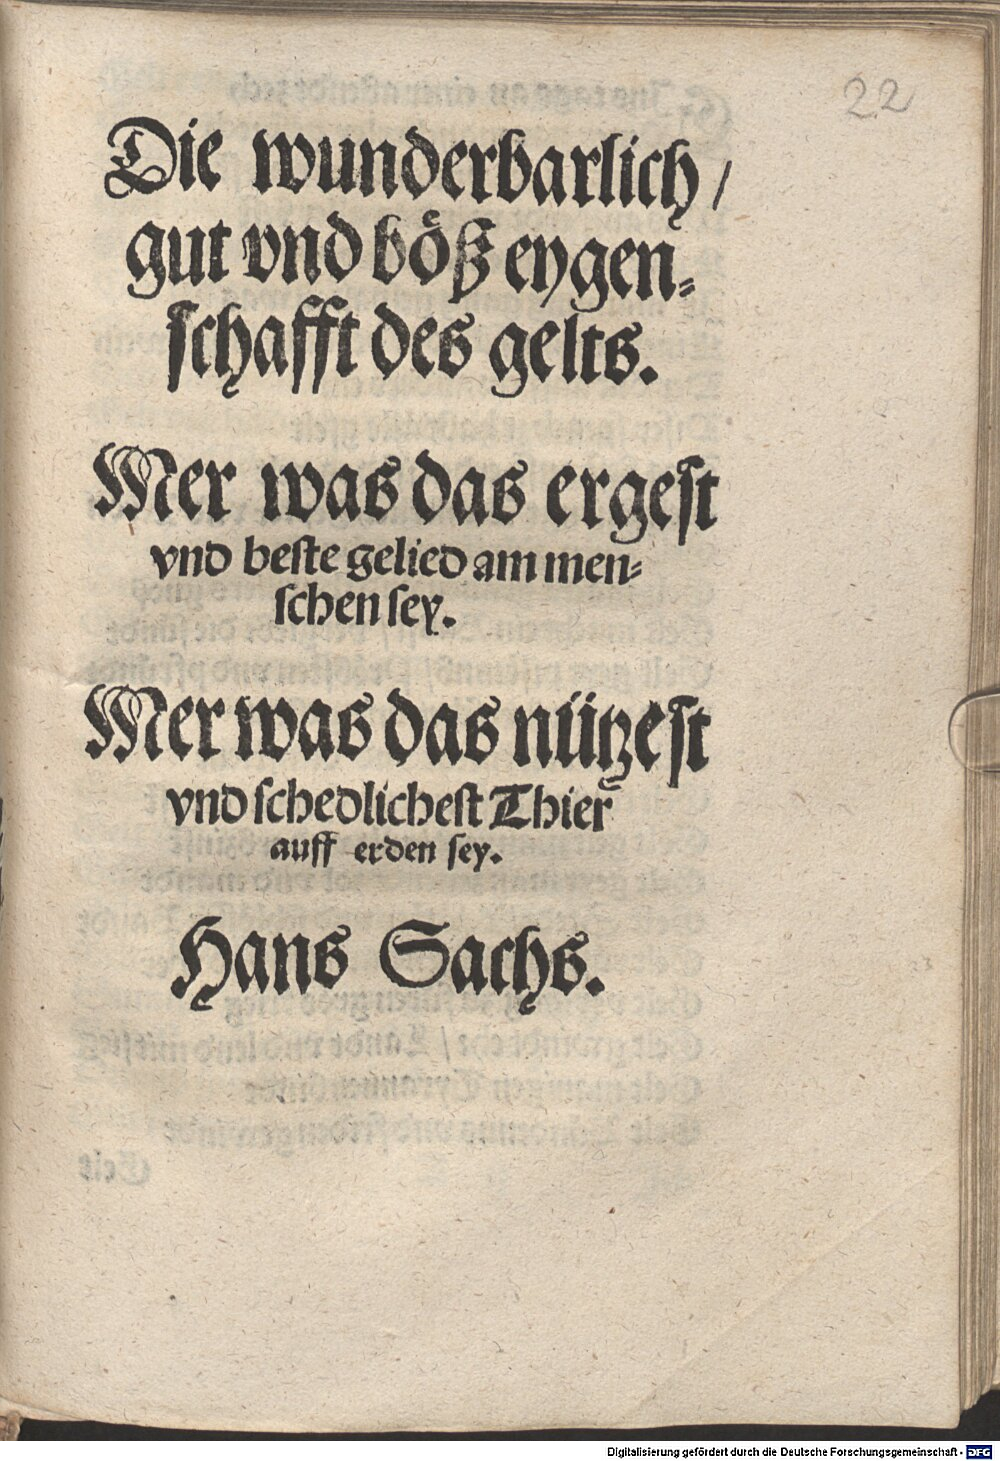 22
Die wunderbarlich /
gut vnd böß eygen⸗
schafft des gelts.
Mer was das ergest
vnd beste gelied am men⸗
schen sey.
Mer was das nützest
vnd schedlichest Thier
auff erden sey.
Hans Sachs.
Digitalisierung gefördert durch die Deutsche Forschungsgemeinschaft - DFG